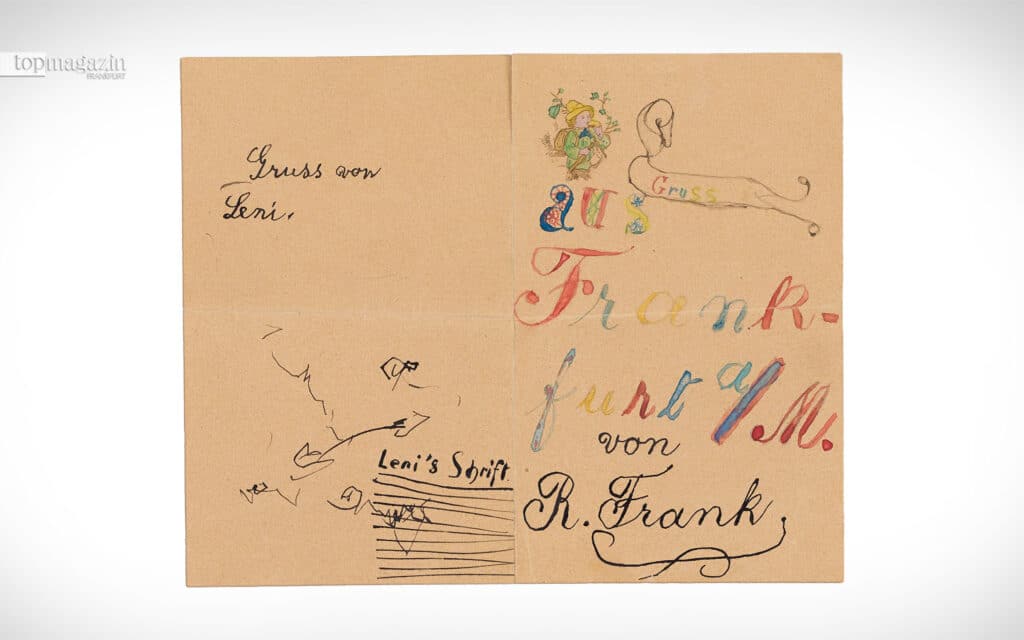 topmagazin
FRANKFURT
Gruss von
Leni.
Leni's Schrift.
Gruss
aus
Frank-
furt a/M.
von
R. Frank.